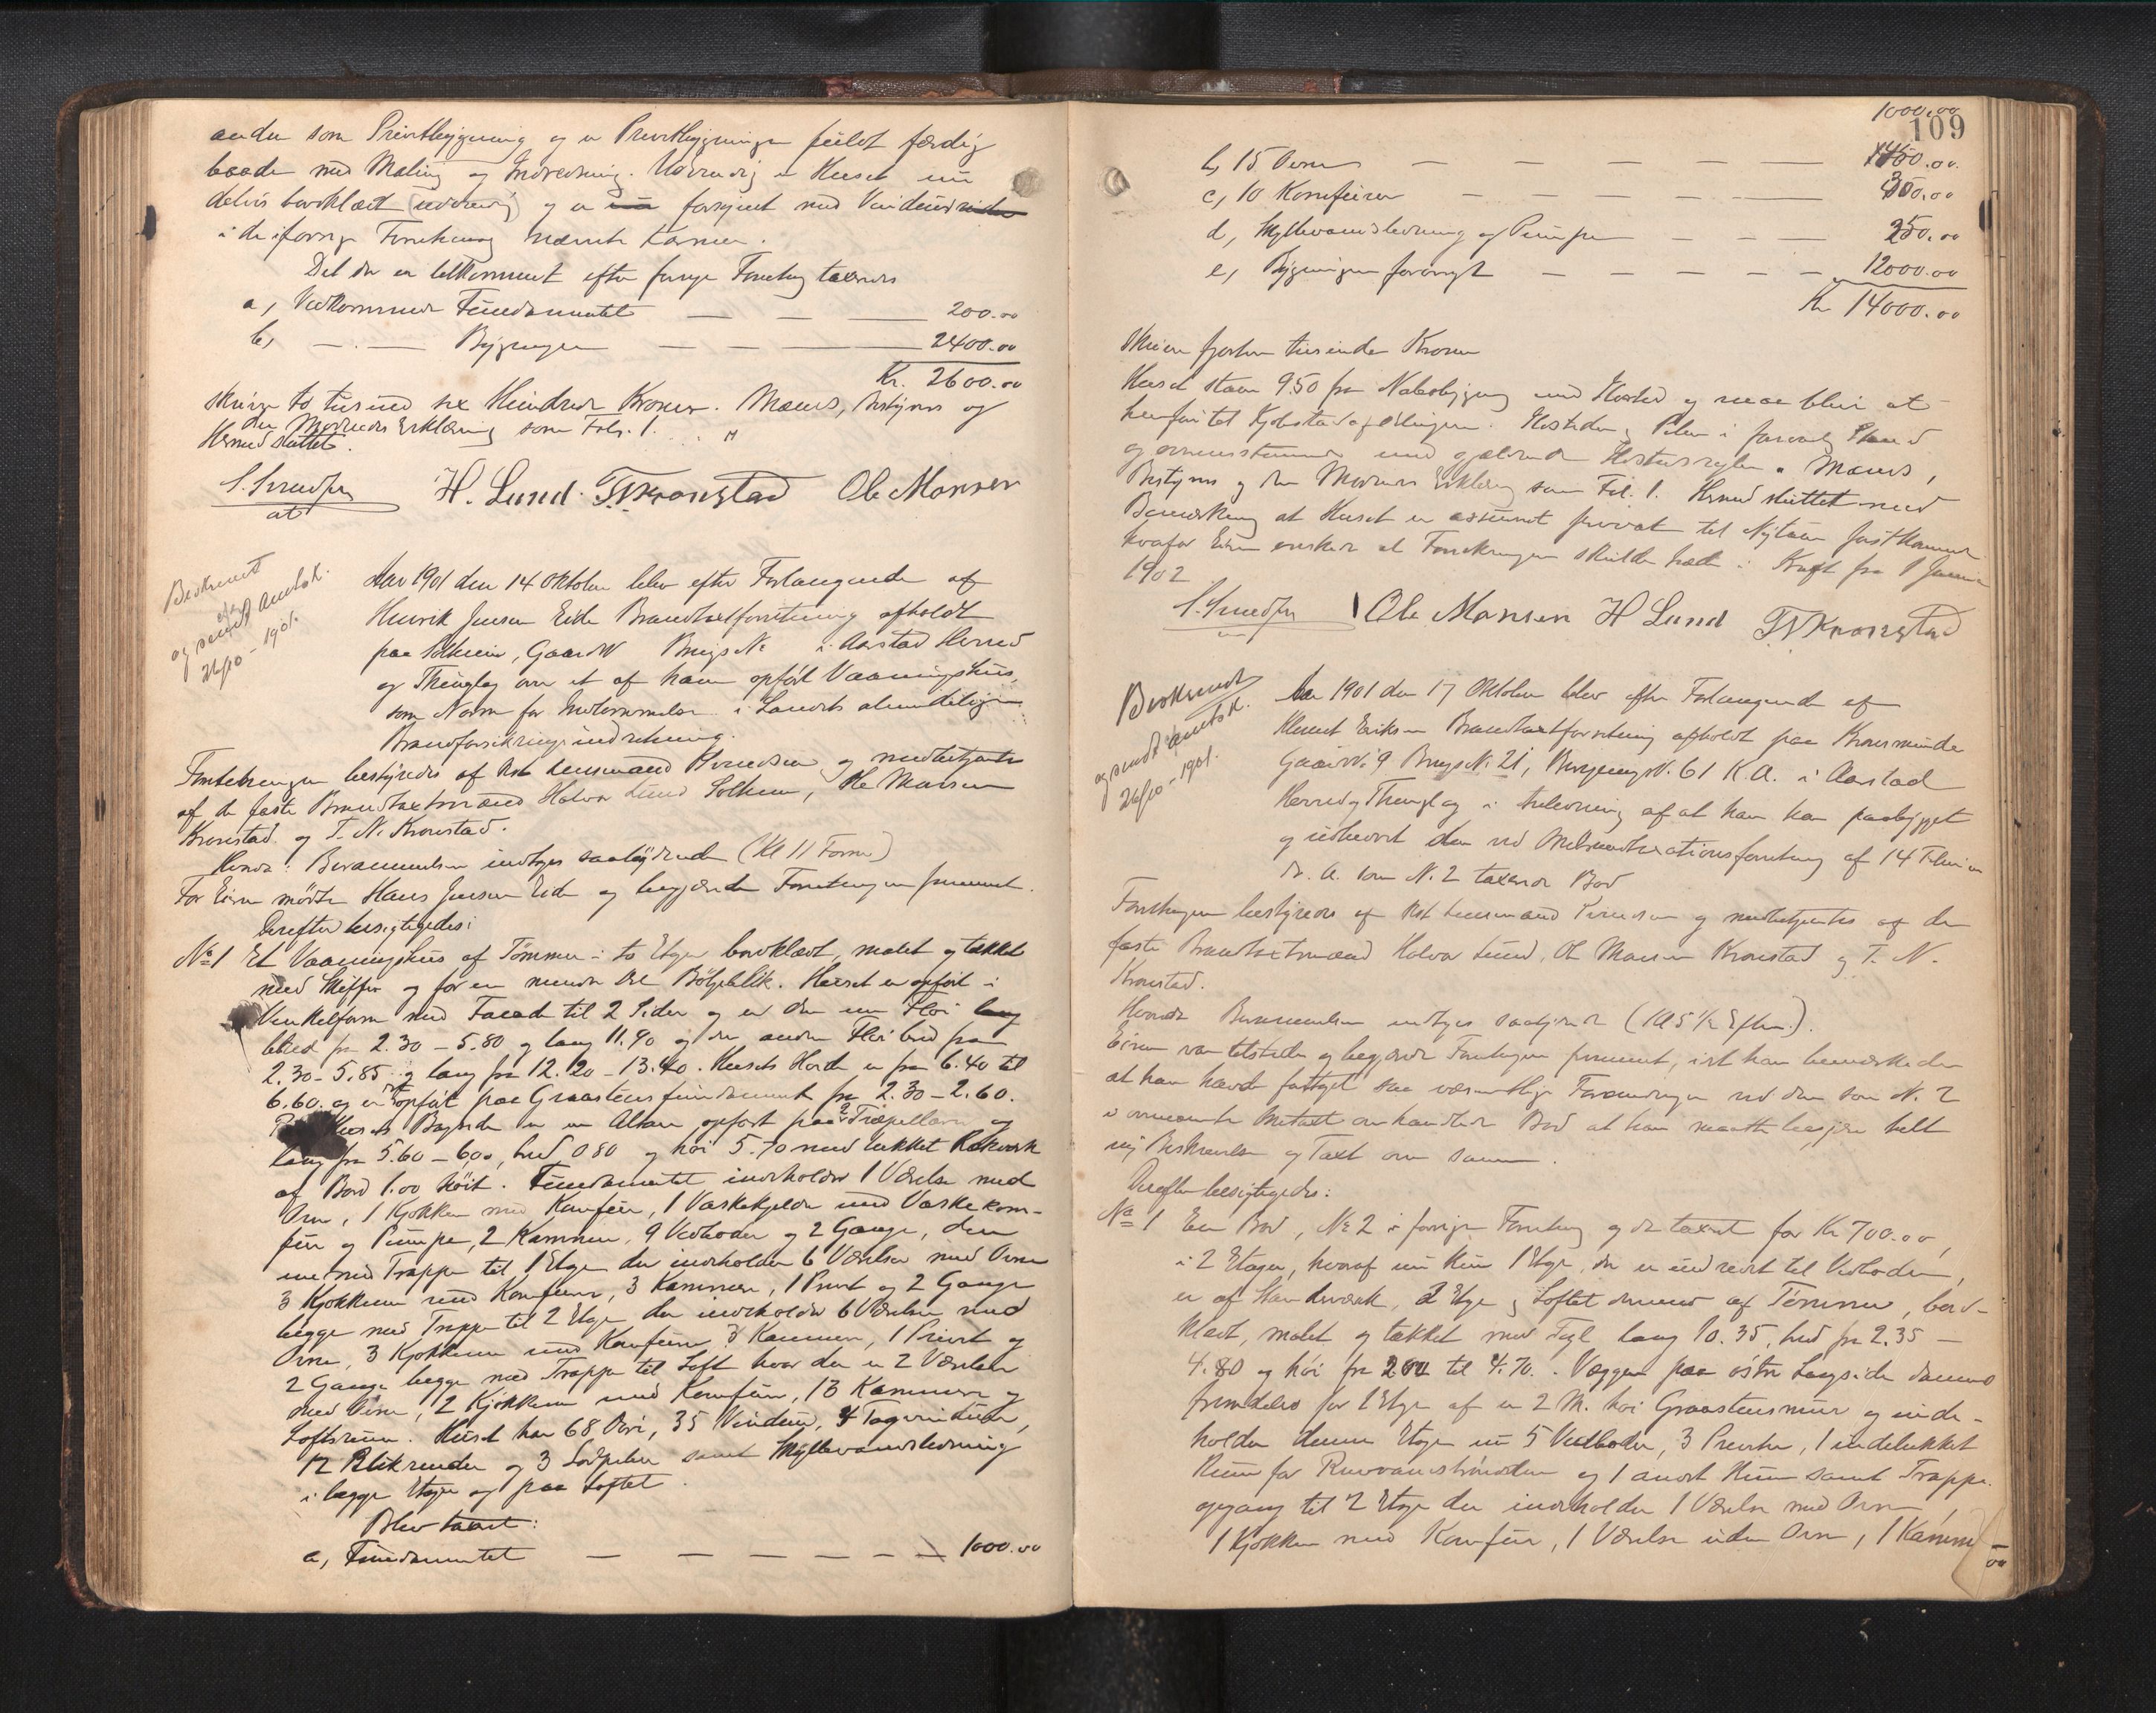 anden som Privetbygning og er Privetbygningen fuldt færdig
baade med Maling og Indredning. Udvendig er Huset nu
delvis bordklædt (udvendig) og er forsynet med Vinduer
i de i forrige Forretning nævnte Karmer.
Det der er tilkommet efter forrige Forretning taxeres
a, Vedkommende Fundamentet — — — 200.00
b, —.— Bygningen — — — 2400.00
Kr. 2600.00
skriver to tusind sex Hundrede Kroner. Mænds, Bestyrers og
den Mødendes Erklæring som Fols. 1.
Hermed sluttet.
H. Lund. T. N. Kronstad Ole Monsen
Beskrevet
og sendt Amtsk.
26/10 - 1901.
Aar 1901 den 14 Oktober blev efter Forlangende af
Henrik Jensen Eide Brandtaxtforretning afholdt
paa Solheim, Gaards No Brugs No i Aarstad Herred
og Thinglag over et af ham opført Vaaningshus,
som Norm for Indlemmelse i Landets almindelige
Brandforsikringsindretning.
Forretningen bestyredes af Kst Lensmand og medbetjentes
af de faste Brandtaxtmænd Halvor Lund Solheim, Ole Monsen
Kronstad og T. N. Kronstad.
Hvorda: Berammelsen indtoges saalydende (Kl 11 Form)
For Eieren mødte Hans Jensen Eide og begjærede Forretningen fremmet.
Derefter besigtigedes:
No 1 Et Vaaningshus af Tømmer i to Etager bordklædt, malet og tækket
med Skiffer og for en mindre Del Bølgeblik. Huset er opført i
Vinkelform med Facade til 2 Sider og er den ene Fløi
bred fra 2.30 - 5.80 og lang 11.90 og den anden Fløi bred fra
2.30 - 5.85 og lang fra 12.20 - 13.40. Husets Høide er fra 6.40 til
6.60 og er opført paa Graastensfundament fra 2.30 - 2.60.
Husets Bagside er en Altan opført paa 2 Træpillarer og
lang fra 5.60 - 6.00, bred 0.80 og høi 5.70 med lukket Rækværk
af Bord 1.00 høit. Fundamentet indeholder 1 Værelse med
Ovn, 1 Kjøkken med Komfur, 1 Vaskekjelder med Vaskekom-
fur og Pumpe, 2 Kammer, 9 Vedboder og 2 Gange, den
ene med Trappe til 1 Etage der indeholder 6 Værelser med Ovne
3 Kjøkkener med Komfurer, 3 Kammere, 1 Privet og 2 Gange
begge med Trappe til 2 Etage der indeholder 6 Værelser med
Ovne, 3 Kjøkkener med Komfurer 3 Kammere, 1 Privet og
2 Gange begge med Trappe til Loft hvor der er 2 Værelser
med Ovne, 2 Kjøkkener med Komfurer, 13 Kammere og
Loftsrum. Huset har 68 Døre, 35 Vinduer, 4 Tagvinduer,
12 Blikrender og 3 Sodpiber samt Skyllevandsledning
i begge Etager og paa Loftet.
Blev taxeret:
a, Fundamentet — — — — — 1000.00
1000.00
109
b, 15 Ovne — — — — — 450.00.
c, 10 Komfurer — — — — 300.00
d, Skyllevandsledning og Pumpe — — — 250.00
e, Bygningen forøvrigt — — — — — 12000.00
Kr 14000.00
skriver fjorten tusinde Kroner
Huset staar 9.50 fra Nabobygning med Ildsted og maa blive at
henføre til Kjøbstadafdelingen. Ildsteder, Piber i forsvarlig Stand
og overensstemmende med gjældende Ildstedsregler. Mænds,
Bestyrers og den Mødendes Erklæring som Fol. 1. Hermed sluttet med
Bemærkning at Huset er assureret privat til Nytaar førstkommende
hvorfor Eieren ønsker at Forsikringen skulde træde i Kraft fra 1 Januar
1902
Ole Monsen H Lund T. N. Kronstad
Beskrevet
og sendt Amtsk.
26/10 - 1901.
Aar 1901 den 17 Oktober blev efter Forlangende af
Knut Eriksen Brandtaxtforretning afholdt paa Kronsminde
Gaards No 9 Brugs No. 21, Bygnings No. 61 K.A. i Aarstad
Herred og Thinglag i Anledning af at han har paabygget
og udbedret den ved Ombrandtaxationsforretning af 14 Februar
d. A. som N. 2 taxerede Bod
Forretningen bestyredes af Kst Lensmand og medbetjentes af de
faste Brandtaxtmænd Halvor Lund, Ole Monsen Kronstad og T. N.
Kronstad.
Hvorda Berammelsen indtoges saalydende (Kl 5 1/2 Efterm.).
Eieren var tilstede og begjærede Forretningen fremmet, idet han bemærkede
at han havde foretaget saa væsentlige Forandringer ved den som N. 2
i omhandlede Bod at han maatte begjære helt
ny Beskrivelse og Taxt over samme.
Derefter besigtigedes:
No 1 En Bod, No 2 i forrige Forretning og da taxeret for Kr 700.00,
i 2 Etager, hvoraf nu kun 1 Etage, der er indredet til Vedboder,
er af Standerværk, 2 Etage og Loftet derimod af Tømmer, bord-
klædt, malet og tækket med Tegl lang 10.35, bred fra 2.35 —
4.80 og høi fra til 4.70. Væggen paa østre Langside dannes
fremdeles for 1 Etage af en 2 M. høi Graastensmur og inde-
holder denne Etage nu 5 Vedboder, 3 Priveter, 1 indelukket
Rum for og 1 andet Rum samt Trappe
opgang til 2 Etage der indeholder 1 Værelse med Ovn,
1 Kjøkken med Komfur, 1 Værelse uden Ovn, 1 Kammer